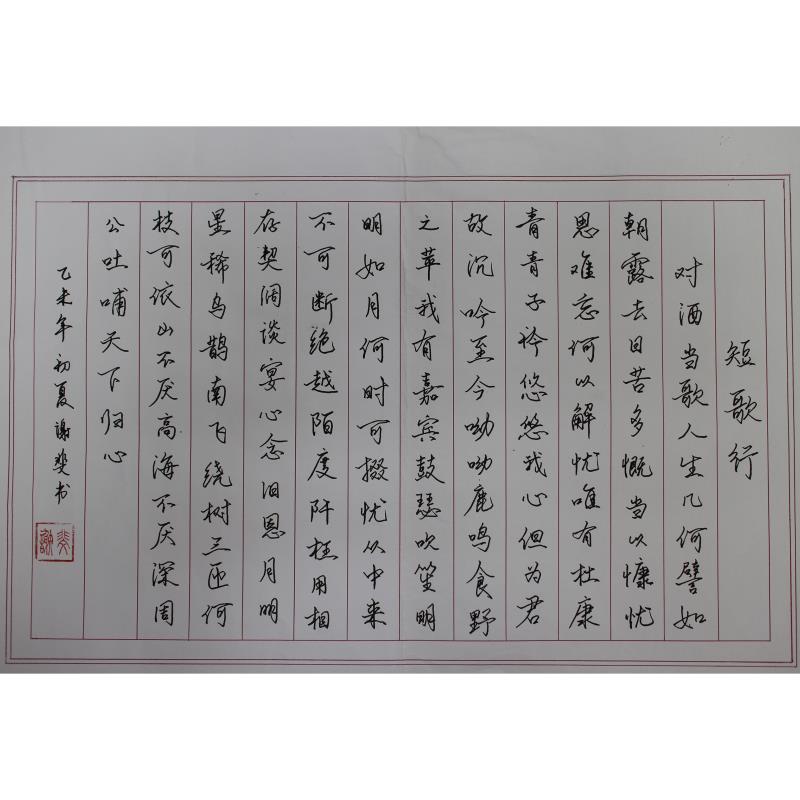 短歌行
对酒当歌人生几何譬如
朝露去日苦多慨当以慷忧
思难忘何以解忧唯有杜康
青青子衿悠悠我心但为君
故沉吟至今呦呦鹿鸣食野
之苹我有嘉宾鼓瑟吹笙明
明如月何时可掇忧从中来
不可断绝越陌度阡枉用相
存契阔谈宴心念旧恩月明
星稀乌鹊南飞绕树三匝何
枝可依山不厌高海不厌深周
公吐哺天下归心
乙未年初夏谢斐书